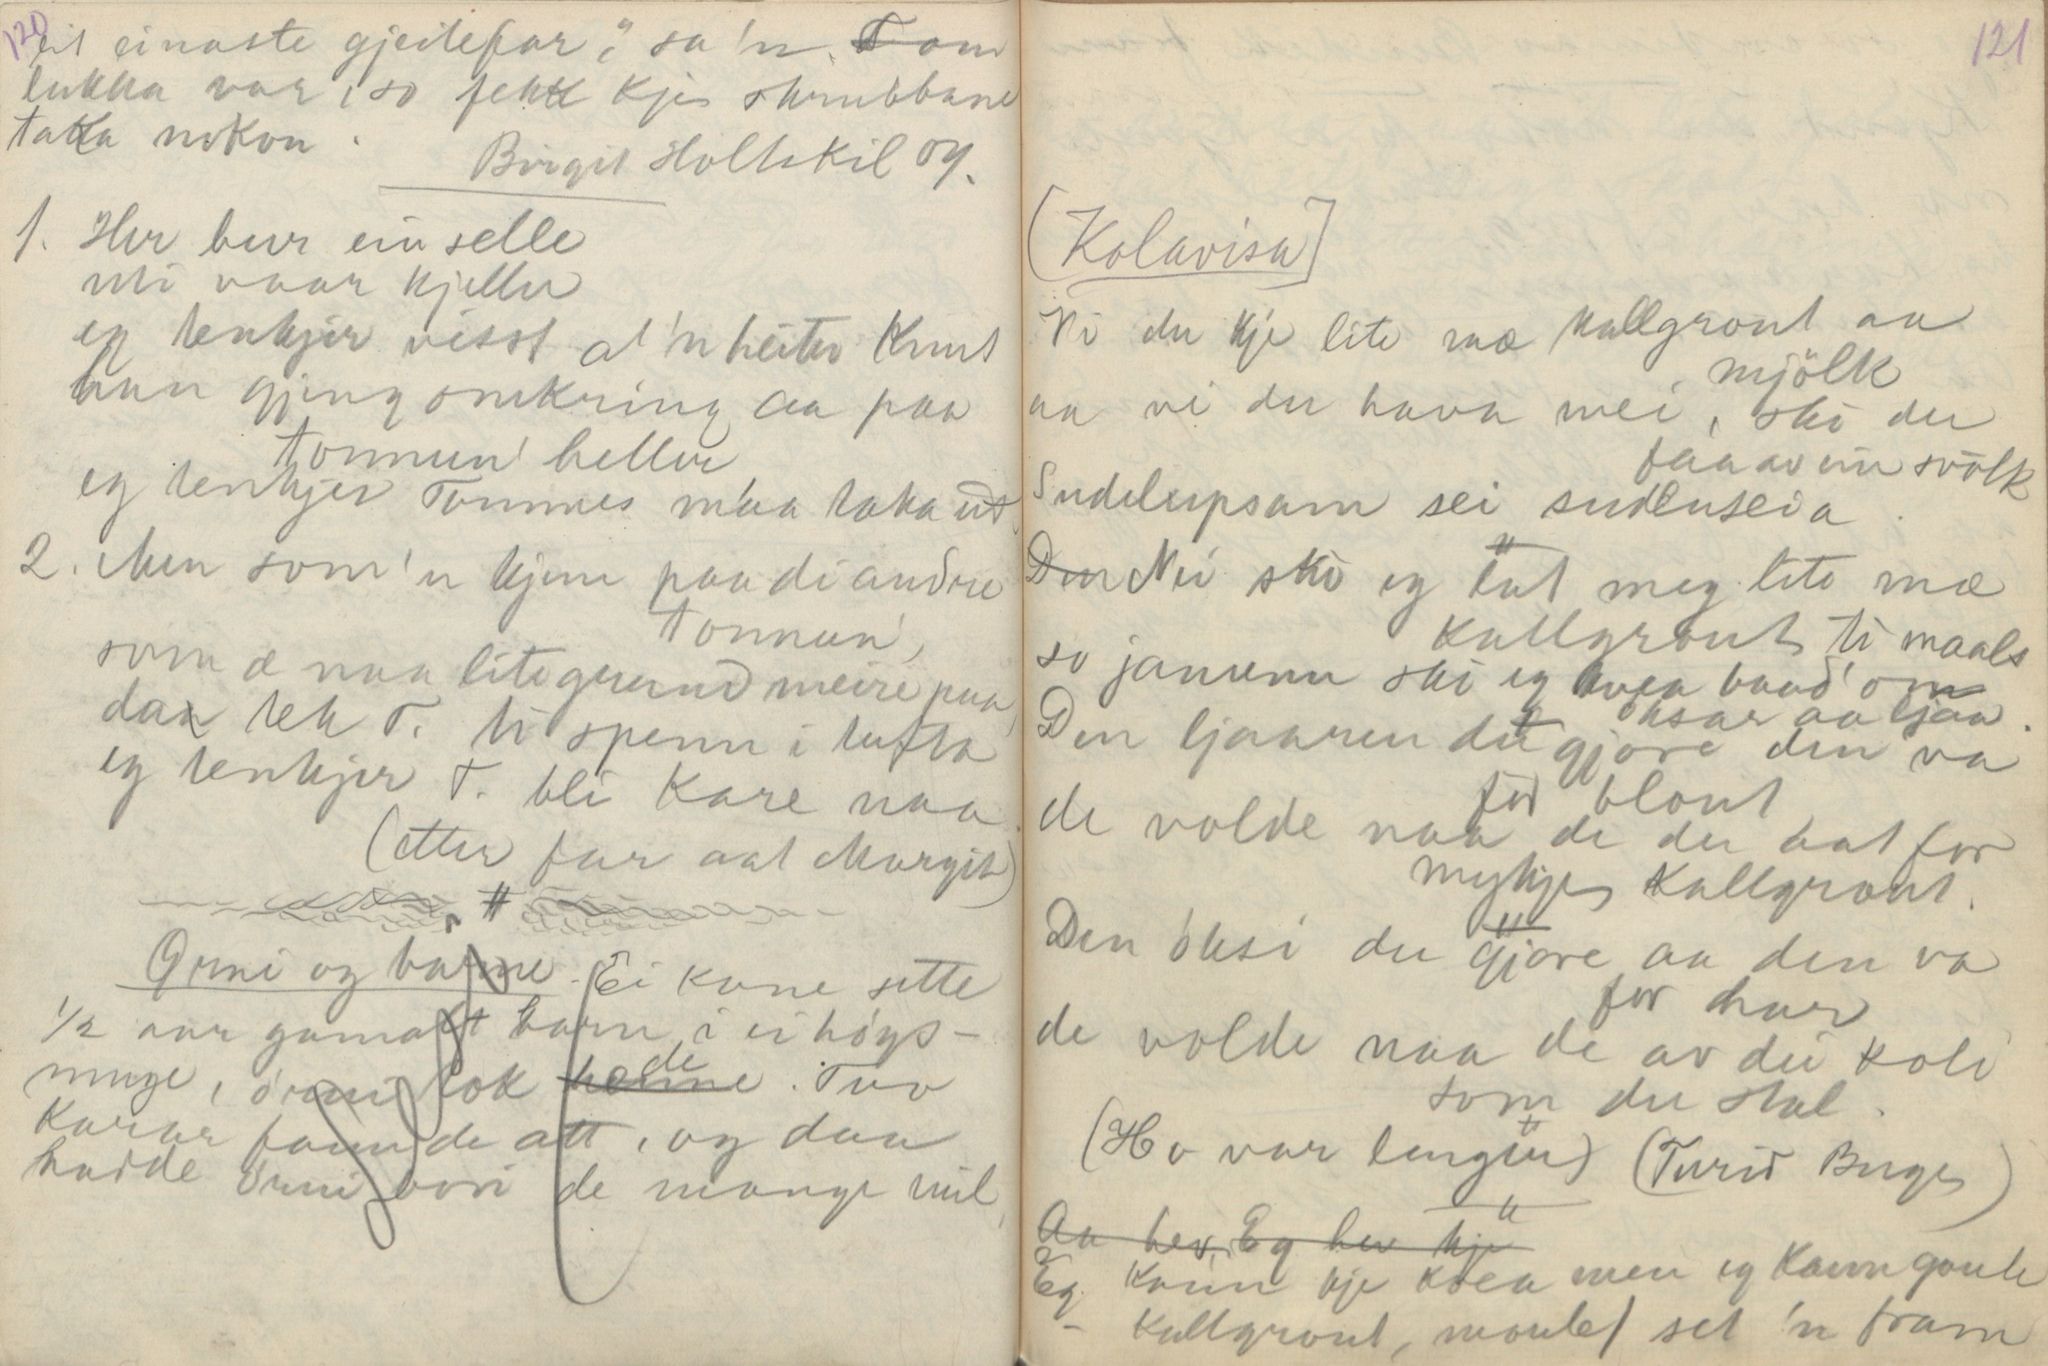 120
eit einaste gjeitefar," sa 'n. T om
lukka var, so fekk kjei skrubbane
taka nokon.
Birgit Holtskil og.
1. Her bur ein selle
uti vaar kjeller
eg tenkjer visst at 'n heiter Knut
han gjeng omkring aa paa
tonnun' heller
eg tenkjer Tonnes maa taka ut.
2. Men som 'n kjem paa di andre
tonnun',
som æ naa litegrund meire paa,
dan tek T. ti spenn i lufta
eg tenkjer T. bli kare naa.
(etter far aat Margit)
#
Ormi og barne. Ei kone sette
1/2 aar gamalt barn i ei høys-
muge, ormi tok henne de. Tvo
karar faun de att, og daa
hadde ormi bori de mange mil,
121
[Kolavisa]
Vi du kje lite mæ kallgraut aa
mjölk
aa vi du hava mei, ski du
faa av ein svölk
Sudeleipsam sei sudeluseia.
Den Nei ski eg eat meg lite mæ
kallgraut ti maals
so jamenn ski eg kvea baad' om
öksar aa ljaa.
Den ljaaren du gjore den va
for blaut
de volde naa de du aat for
mykje kallgraut.
Den öksi du gjore aa den va
for har
de volde naa de av dei koli
som du stal.
(Ho var lenger) (Turid Buge)
Aa hev, Eg hev kje
Eg kann kje kvea men eg kann gaule
- kallgraut, set 'n fram